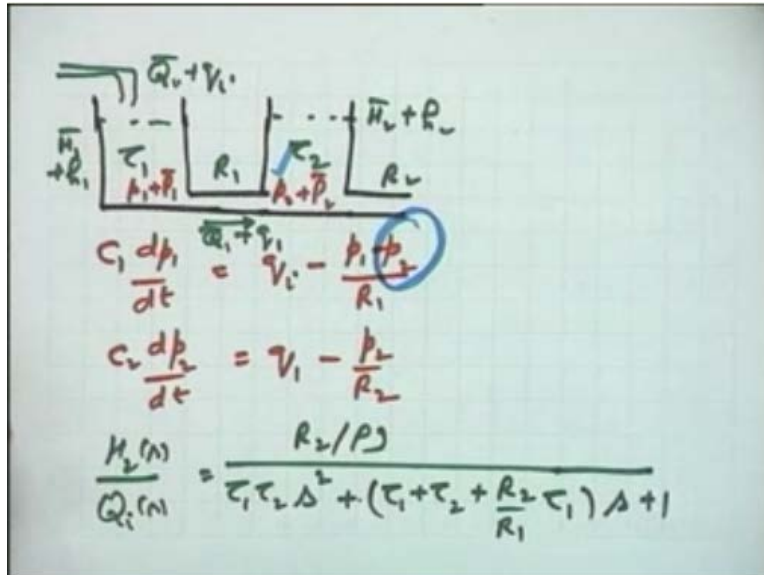 Q̄ᵢ + qᵢ
H̄₁ + h₁
H̄₂ + h₂
τ₁
R₁
τ₂
R₂
p₁ + P̄₁
p₂ + P̄₂
Q̄₁ + q₁
C₁ dp₁/dt = qᵢ - (p₁ - p₂)/R₁
C₂ dp₂/dt = q₁ - p₂/R₂
H₂(s)/Qᵢ(s) = (R₂/ρg)/(τ₁τ₂s² + (τ₁ + τ₂ + (R₂/R₁)τ₁)s + 1)